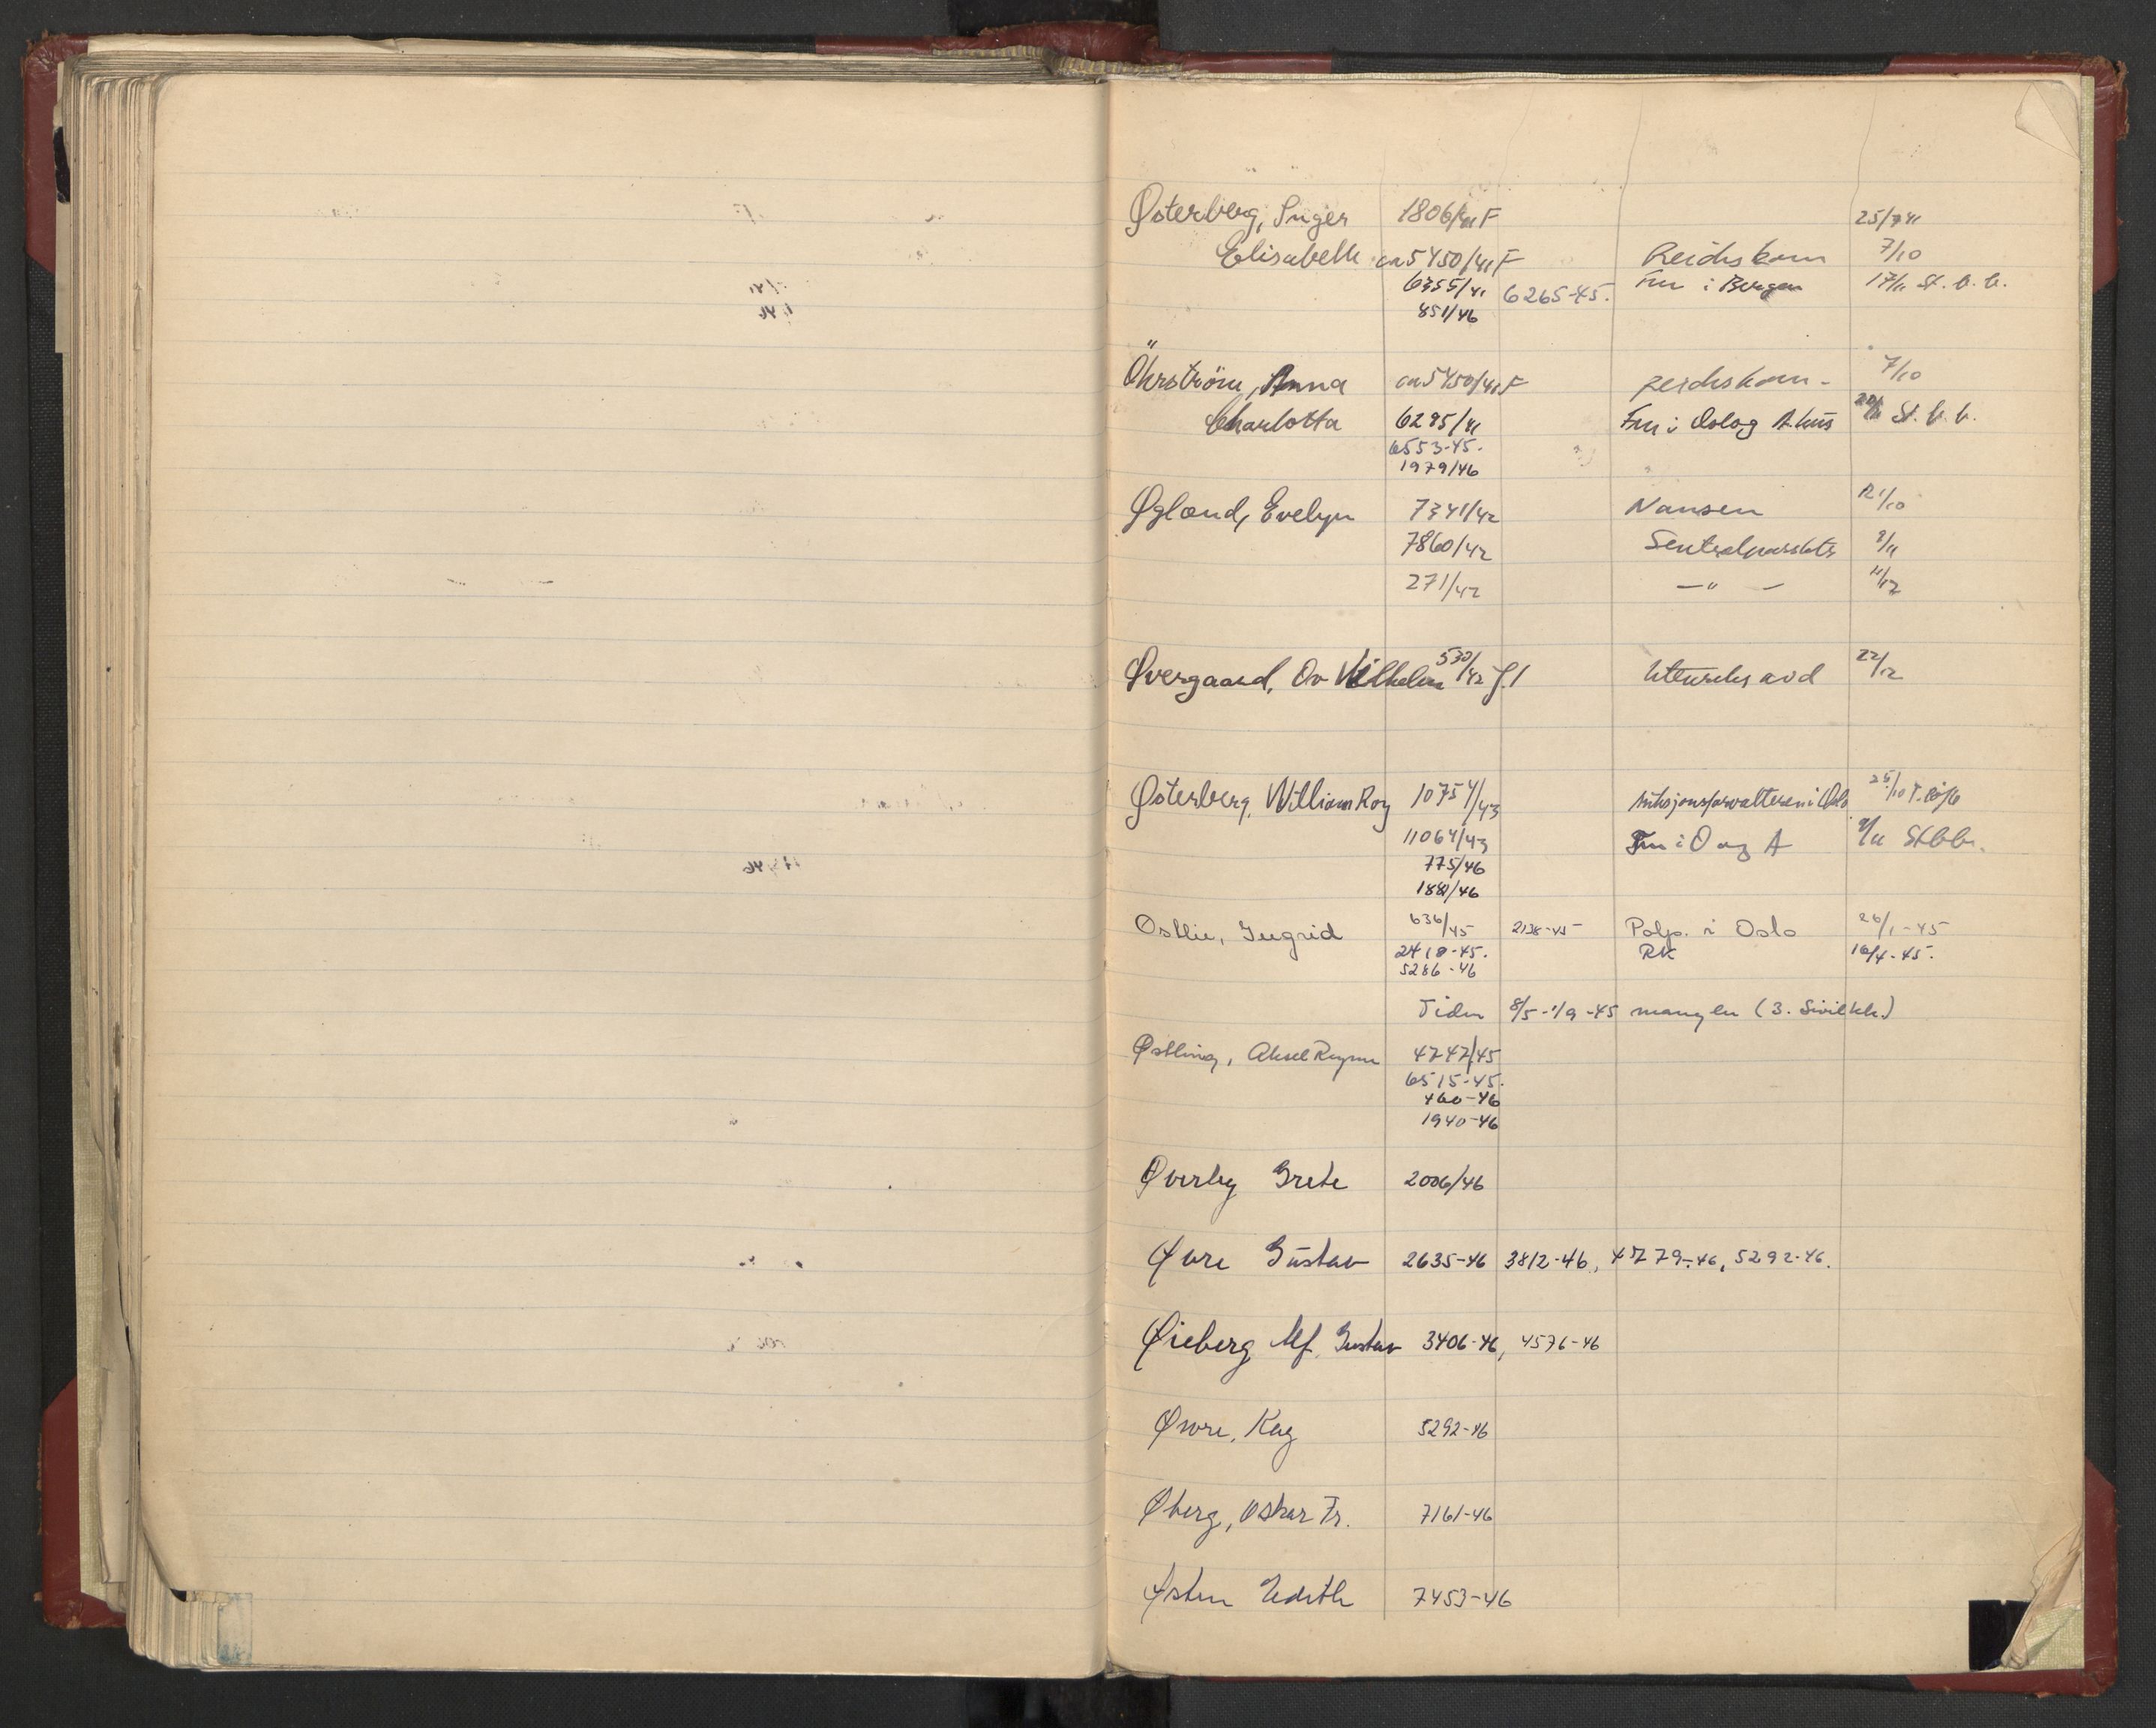 Østerberg, Inger 1806/41 F 25/7 41
Elisabeth ca 5450/41 F Reichskom 7/10
6355/41 6265-45. Fm i Bergen 17/11 St. b. b.
851/46
Öhrström, Anna ca 5450/41 F Reichskom - 7/10
Charlotta 6295/41 Fm i Oslo og A.hus 20/11 St. b. b.
6553-45.
1979/46
Øglænd, Evelyn 7341/42 Nansen 21/10
7860/42 Sentralpasskts 9/11
271/42 — " — 11/12
Øvergaard, Ov Vilhelm 530/42 J.1 Utenriks avd 22/12
Østerberg, William Roy 10754/43 Auksjonsforvalteren i Oslo 25/10
11064/43 Fm i O og A 9/11 St bb.
775/46
1881/46
Østlie, Ingrid 636/45 2138-45 Polp. i Oslo 26/1-45
2418-45. RK 16/4-45.
5286-46
Tiden 8/5-1/9-45 mangler (3. Sivilkk.)
Østling, Aksel Ragnar 4747/45
6515-45.
460-46
1940-46
Øverby Grete 2006/46
Øvre Gustav 2635-46 3812-46, 4779-46, 5292-46.
Øieberg Alf Gustav 3406-46, 4576-46
Øvre, Kay 5292-46
Øberg, Oskar Fr. 7161-46
Østen Edith 7453-46